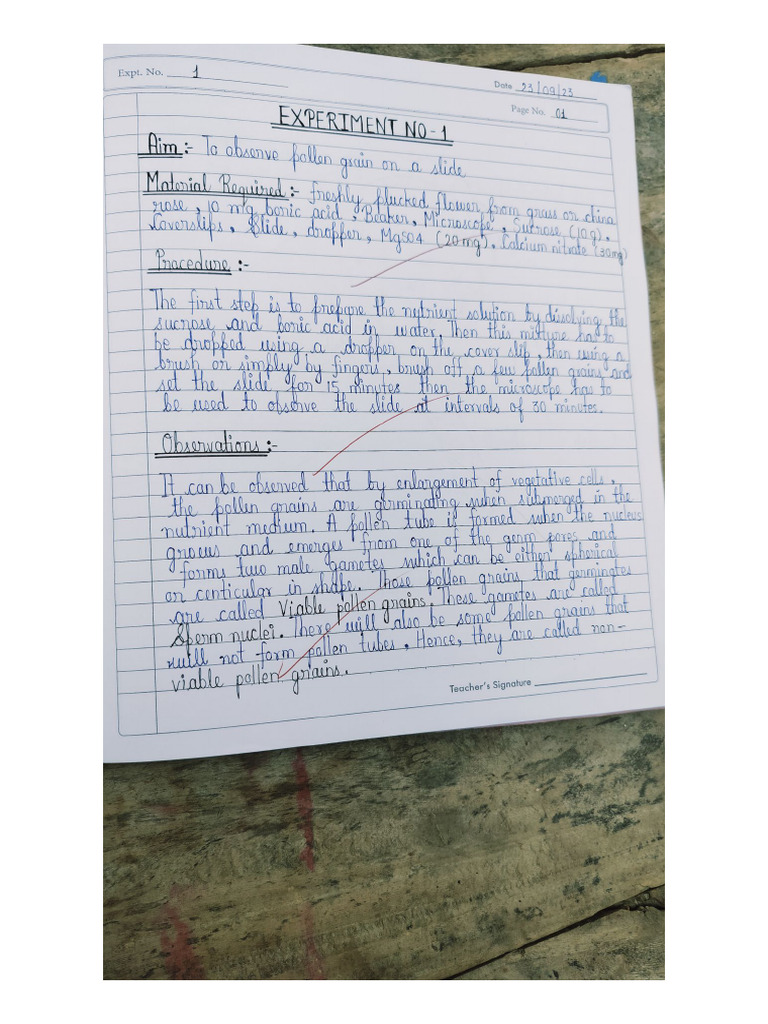 Expt. No. 1
Date 23/09/23
Page No. 01
EXPERIMENT NO - 1
Aim :- To observe pollen grain on a slide
Material Required :- freshly plucked flower from grass or china
rose, 10 mg boric acid, Beaker, Microscope, Sucrose (10g),
Coverslips, Slide, dropper, MgSO4 (20mg), Calcium nitrate (30mg)
Procedure :-
The first step is to prepare the nutrient solution by dissolving the
sucrose and boric acid in water. Then this mixture has to
be dropped using a dropper on the cover slip, then using a
brush or simply by fingers, brush off a few pollen grains and
set the slide for 15 minutes then the microscope has to
be used to observe the slide at intervals of 30 minutes.
Observations :-
It can be observed that by enlargement of vegetative cells,
the pollen grains are germinating when submerged in the
nutrient medium. A pollen tube if formed when the nucleus
grows and emerges from one of the germ pores and
forms two male gametes which can be either spherical
or centicular in shape. Those pollen grains that germinates
are called Viable pollen grains. These gametes are called
Sperm nuclei. There will also be some pollen grains that
will not form pollen tubes. Hence, they are called non-
viable pollen grains.
Teacher's Signature